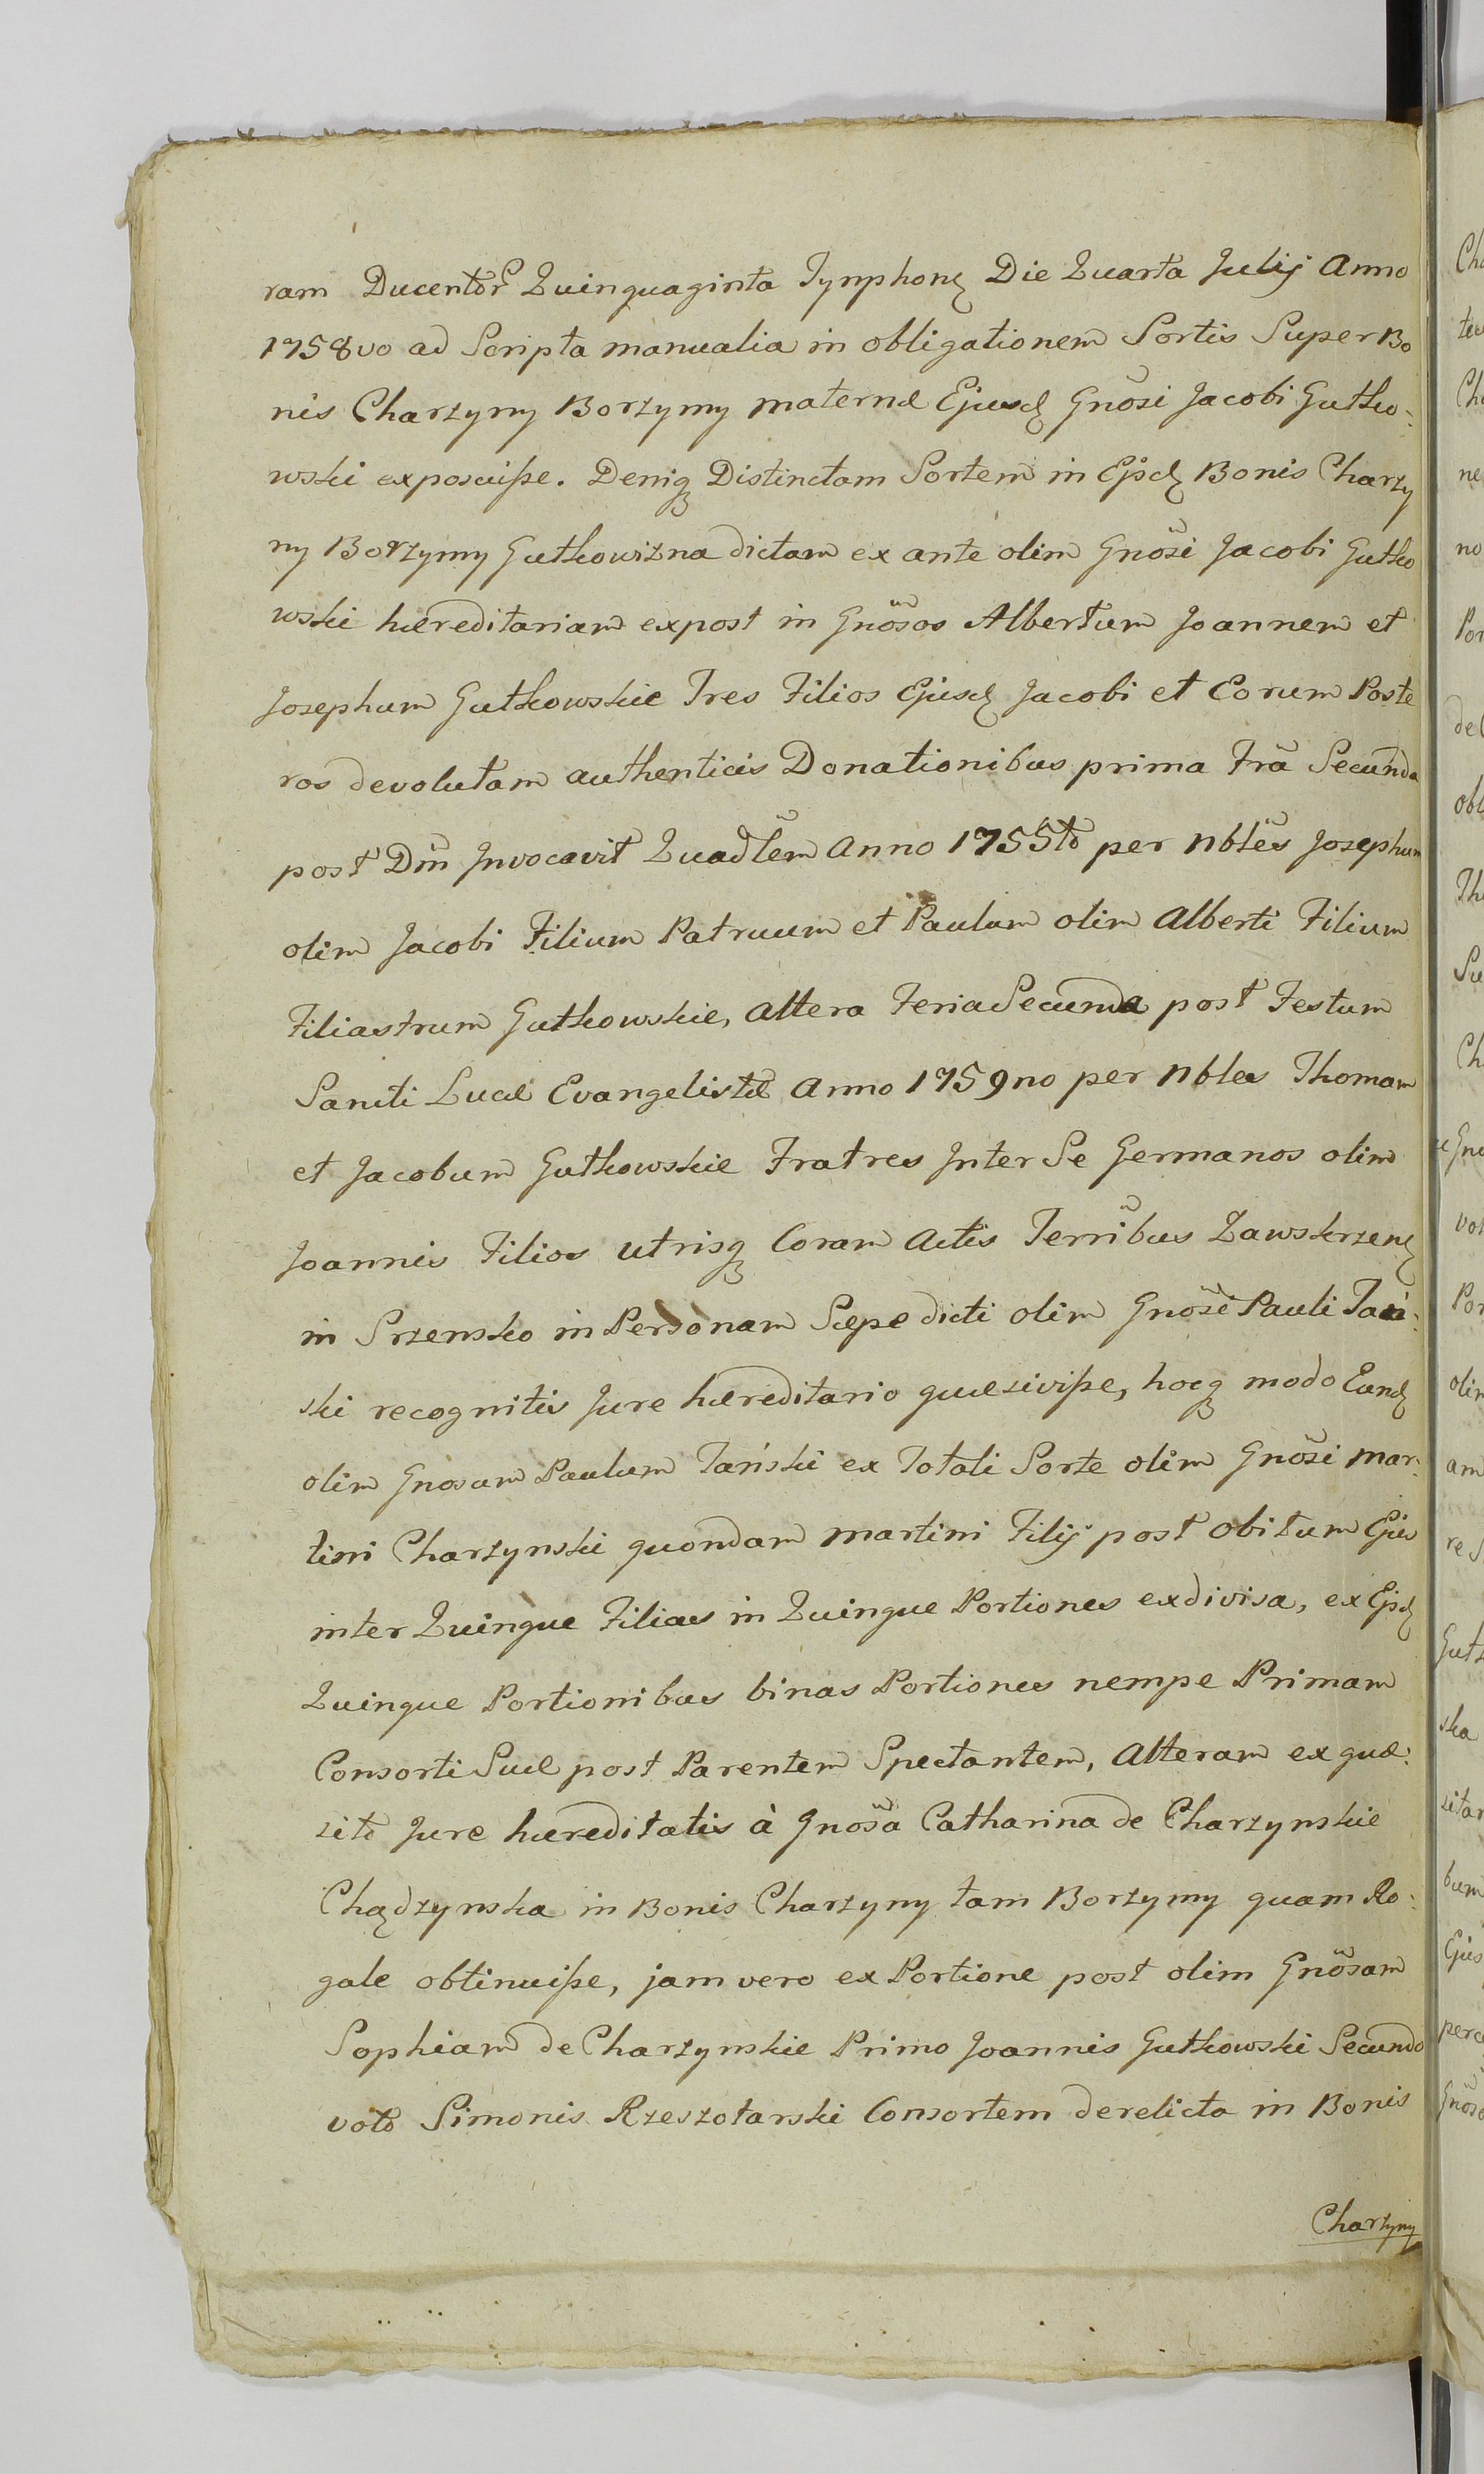 ram Ducentor Quinquaginta Tynphon Die Quarta Julij Anno
1758vo ad Scripta manualia in obligationem Sortis Super Bo
nis Charzyny Borzymy maternæ Ejusd Gnosi Jacobi Gutko:
wski exposuiſse. Deniq Distinctam Sortem in Ejsd Bonis Charzy
ny Borzymy Gutkowizna dictam ex ante olim Gnosi Jacobi Gutko
wski hæreditariam expost in Gnosos Albertum Joannem et
Josephum Gutkowskie Tres Filios Ejusd Jacobi et Eorum Poste
ros devolutam authenticis Donationibus prima Fra Secunda
post Dm Invocavit Quadlem Anno 1755to per Nbles Josephum
olim Jacobi Filium Patruum et Paulum olim Alberti Filium
Filiastrum Gutkowskie, Altera Feria Secunda post Festum
Sancti Lucæ Evangelistæ Anno 1759no per Nbles Thomam
et Jacobum Gutkowskie Fratres Inter Se Germanos olim
Joannis Filios utrisq Coram Actis Terribus Zawskrzen
in Srzensko in Personam Sæpe dicti olim Gnosi Pauli Tań:
ski recognitis Jure hæreditario quæsiviſse, hocq modo Eund
olim Gnosum Paulum Tański ex Totali Sorte olim Gnosi Mar:
tini Charzynski quondam Martini Filij post obitum Ejus
inter Quinque Filias in Quinque Portiones exdivisa, ex Ejsd
Quinque Portionibus binas Portiones nempe Primam
Consorti Suæ post Parentem Spectantem, Alteram ex quæ:
sito Jure hæreditatis à Gnosa Catharina de Charzynskie
Chądzynska in Bonis Charzyny tam Borzymy quam Ro:
gale obtinuiſse, jam vero ex Portione post olim Gnosam
Sophiam de Charzynskie Primo Joannis Gutkowski Secundo
voto Simonis Rzeszotarski Consortem derelicta in Bonis
Charzyny